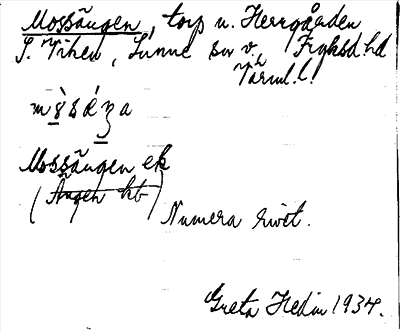 Mossängen, torp u. Herrgården
S. Viken, Sunne sn v, Fryksd. hd
Värml. l.
Mossängen ek
(Ängen kb)
Numera rivet.
Greta Hedin 1934.